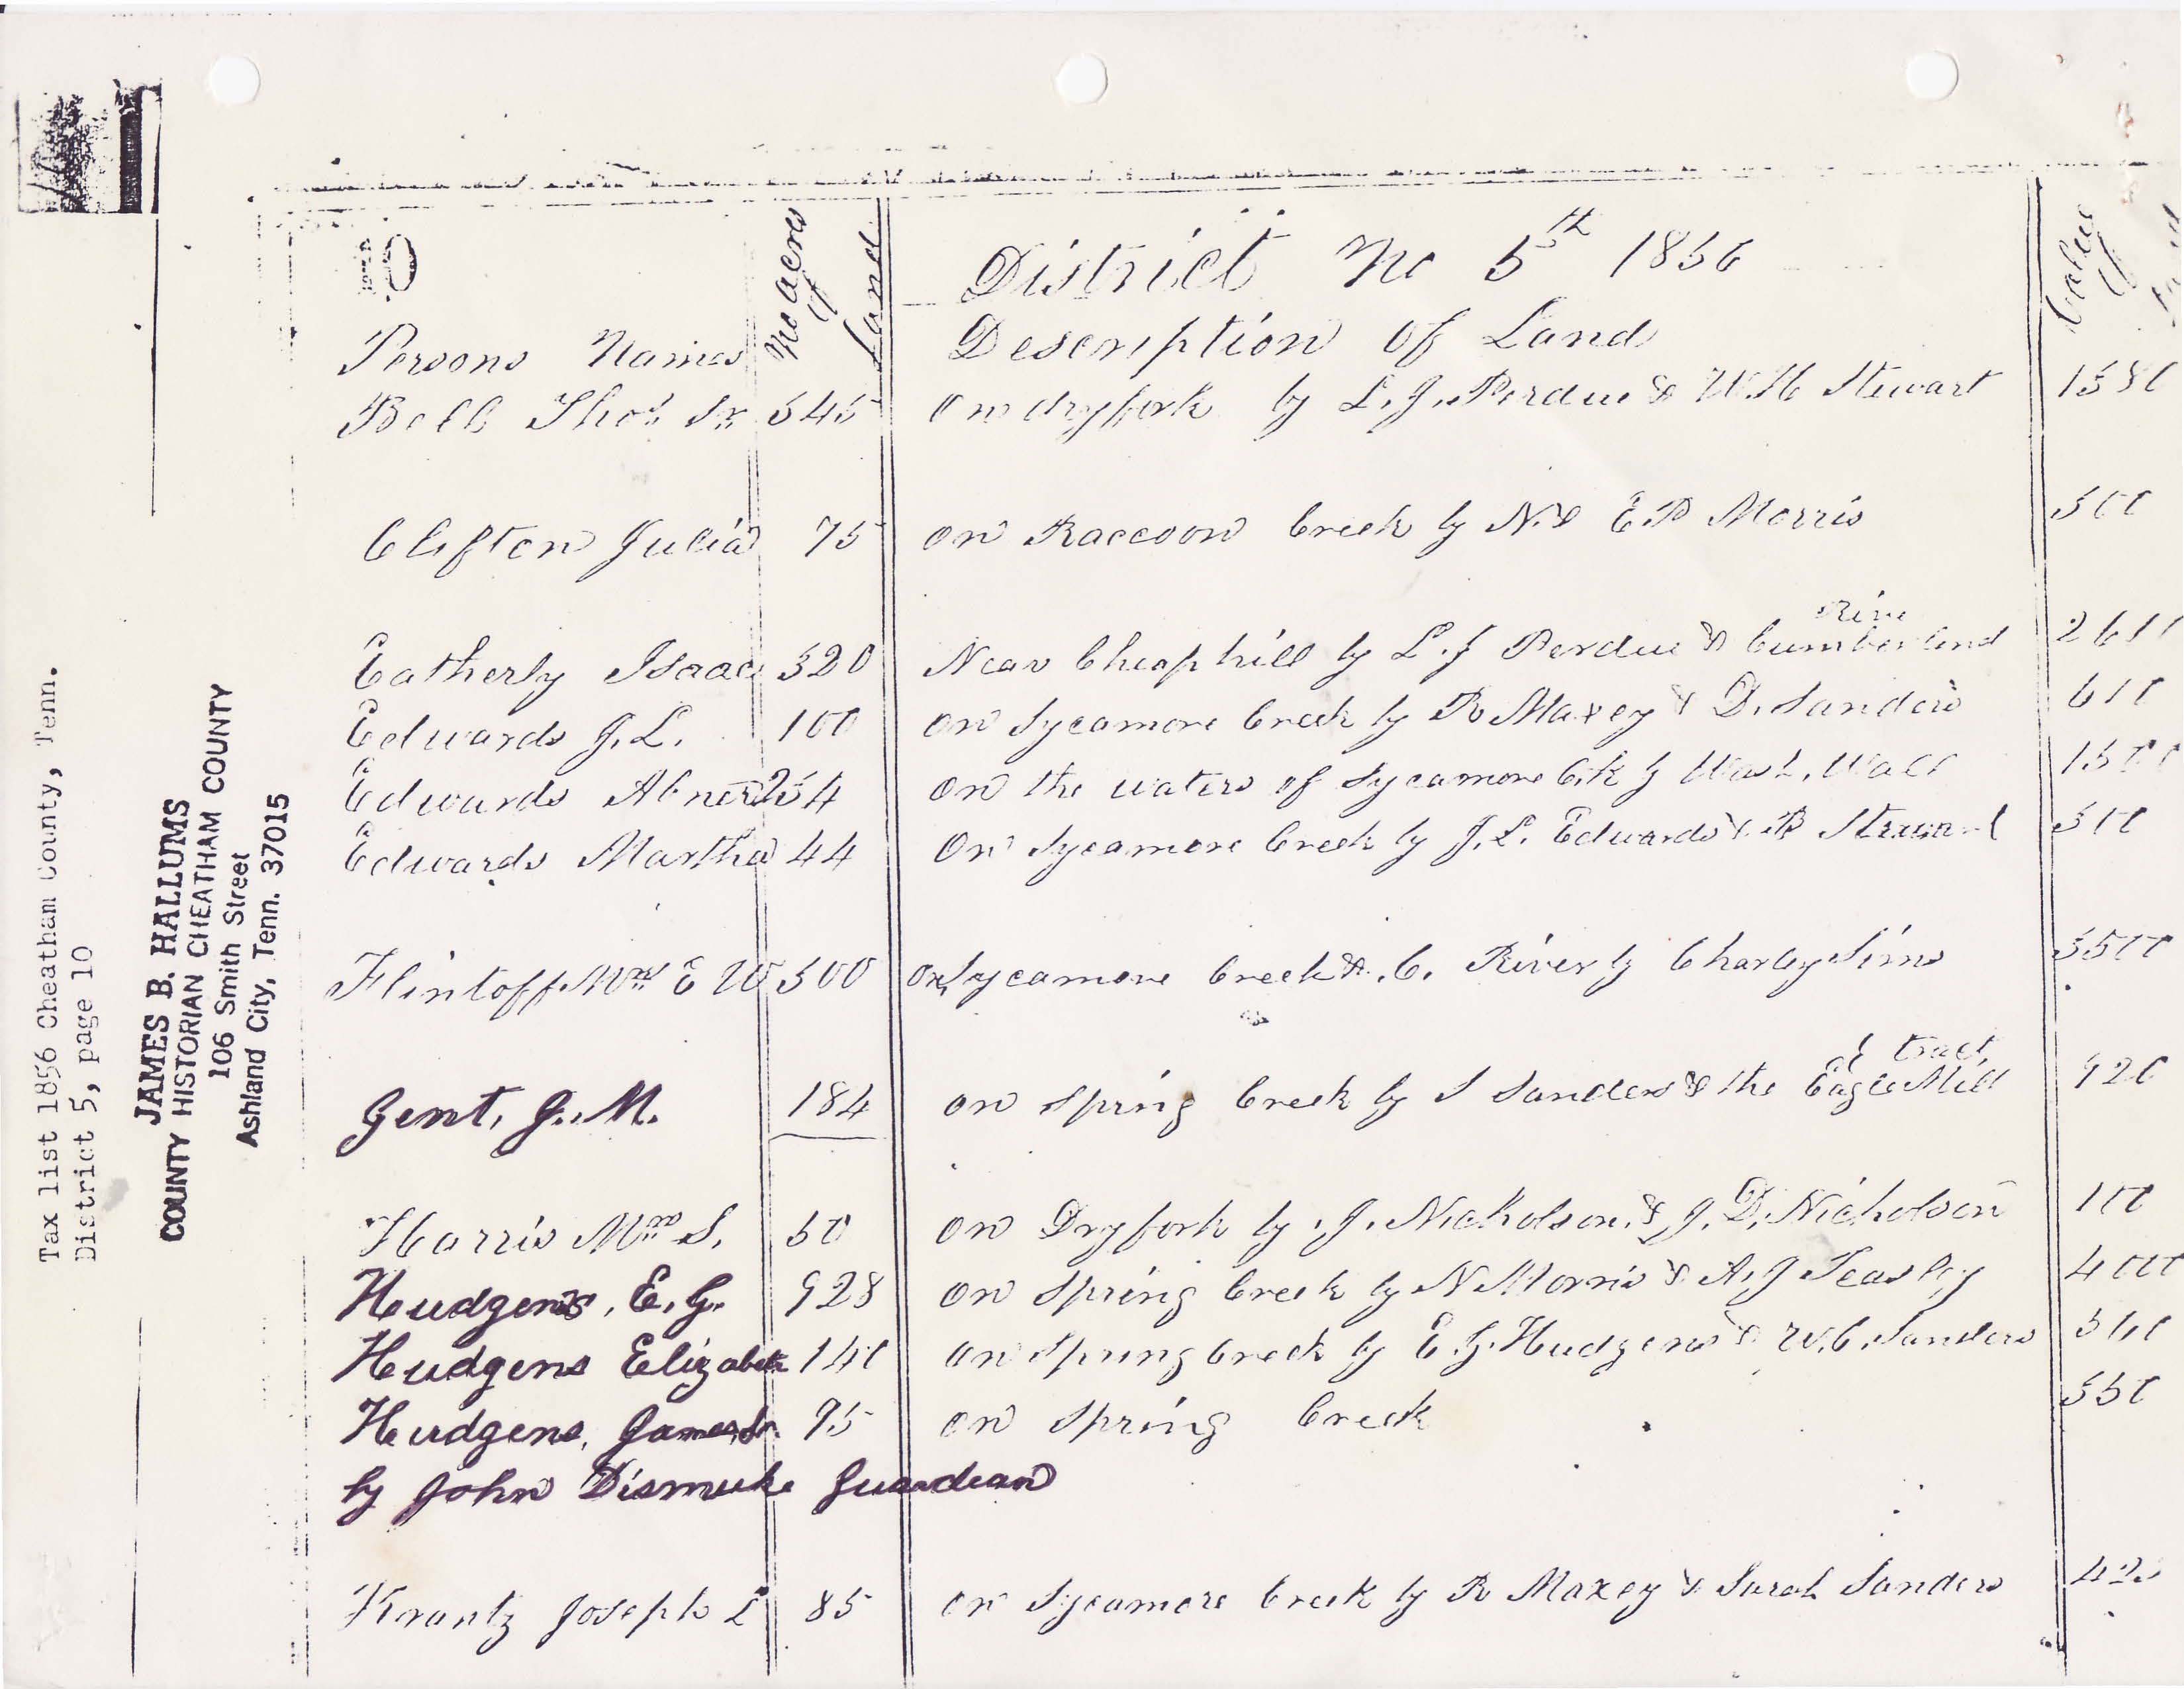 Tax list 1856 Cheatham County, Tenn.
District 5, page 10
JAMES B. HALLUMS
COUNTY HISTORIAN CHEATHAM COUNTY
106 Smith Street
Ashland City, Tenn. 37015
10
District No 5th 1856
Persons Names No acres of Land Description of Land Value of
Bell Thos Sr 545 on dryfork by L. J. Perdue & W. H. Stewart
Clifton Julia 75 on Raccoon Creek by N. & E. D Morris 300
Eatherly Isaac 320 Near Cheaphill by L. J Perdue & Cumberland
Edwards J. L. 100 on Sycamore Creek by R Maxey & D. Sanders 600
Edwards Abner 254 on the waters of Sycamore Crk by Wash. Wall 1500
Edwards Martha 44 On Sycamore Creek by J. L. Edwards & 300
Flintoff Mrs E W 500 on Sycamore Creek & C. River by Charley Sims 5500
Gent, G. M. 184 on Spring Creek by S Sanders & the Eagle Mill tract 920
Harris Mrs S. 50 on Dryfork by J. Nicholson & J. D. Nicholson 100
Hudgens, E. G. 928 on Spring Creek by N Morris & A. J Teasley 4000
Hudgens Elizabeth 140 on Spring Creek by E. G. Hudgens & W. C. Sanders
Hudgens, James Jr. 95 on Spring Creek 550
by John Dismuke Guardian
Krantz Joseph L 85 on Sycamore Creek by R Maxey & Sarah Sanders 425